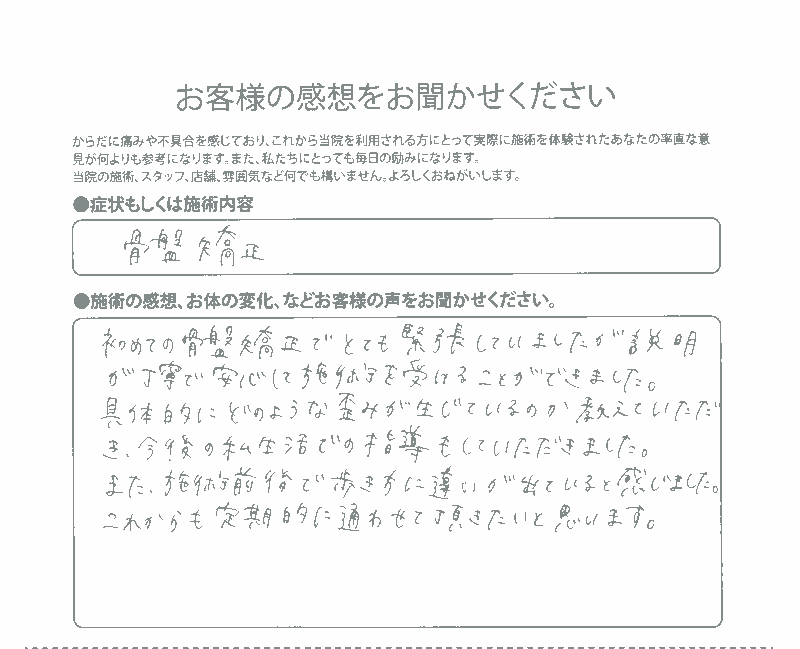 お客様の感想をお聞かせください
からだに痛みや不具合を感じており、これから当院を利用される方にとって実際に施術を体験されたあなたの率直な意
見が何よりも参考になります。また、私たちにとっても毎日の励みになります。
当院の施術、スタッフ、店舗、雰囲気など何でも構いません。よろしくおねがいします。
●症状もしくは施術内容
骨盤矯正
●施術の感想、お体の変化、などお客様の声をお聞かせください。
初めての骨盤矯正でとても緊張していましたが説明
が丁寧で安心して施術を受けることができました。
具体的にどのような歪みが生じているのか教えていただ
き、今後の私生活での指導もしていただきました。
また、施術前後で歩き方に違いが出ていると感じました。
これからも定期的に通わせて頂きたいと思います。